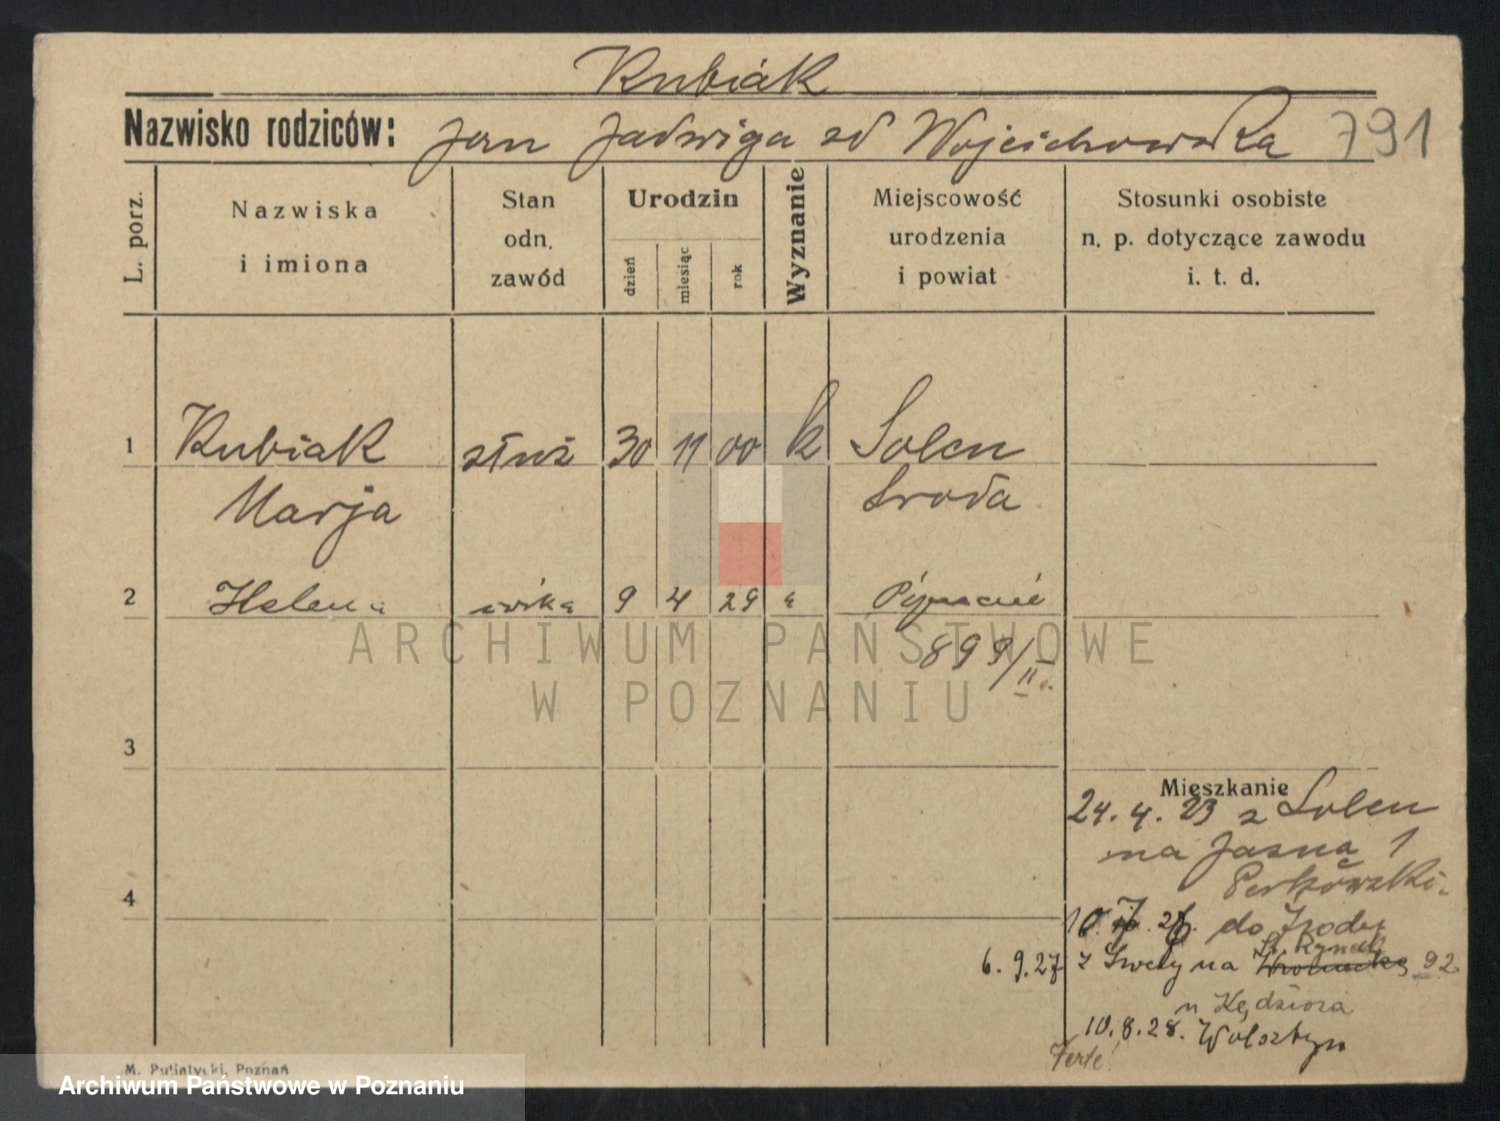 Kubiak
Nazwisko rodziców: Jan Jadwiga zd Wojciechowska 791
L. porz.
Nazwiska i imiona
Stan odn. zawód
Urodzin
dzień
miesiąc
rok
Wyznanie
Miejscowość urodzenia i powiat
Stosunki osobiste n. p. dotyczące zawodu i. t. d.
1 Kubiak służ 30 11 00 k Solen
Marja Sroda
2 Helena córka 9 4 29 "
899/II.
3
Mieszkanie
24. 4. 23 z Solen
na Jasna 1
4
do Środy
6. 9. 27 z na St. Rynek 92
u Kędziora
10. 8. 28. Wolsztyn
ARCHIWUM PAŃSTWOWE
W POZNANIU
M. Putiatycki, Poznań
Archiwum Państwowe w Poznaniu